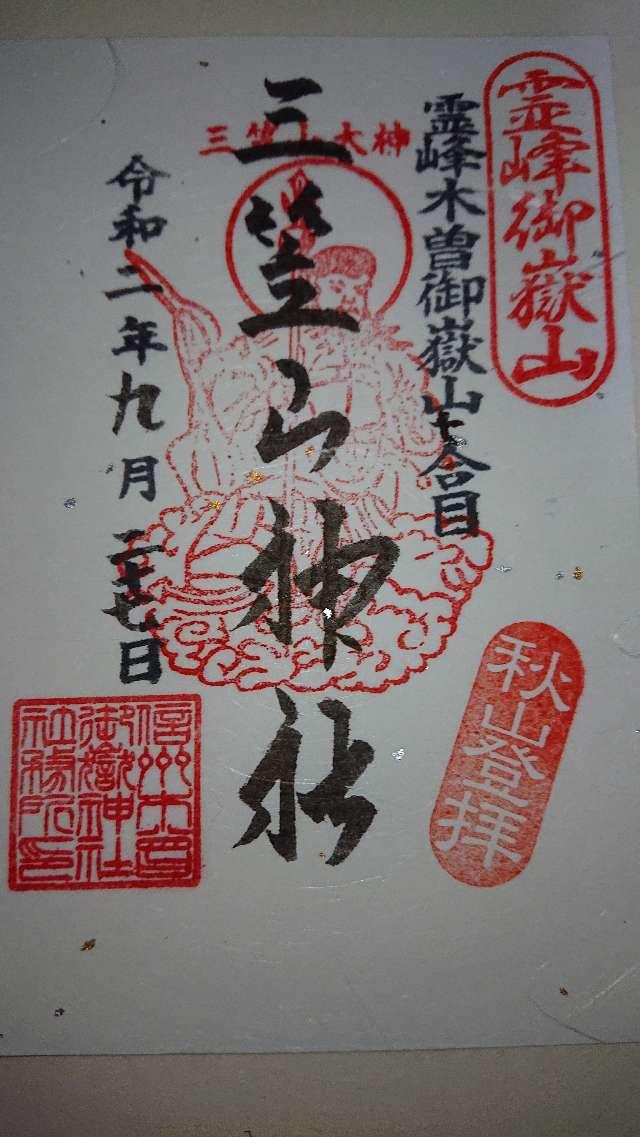 霊峰御嶽山
霊峰木曽御嶽山七合目
秋山登拝
三笠山大神
三笠山神社
令和二年九月二十七日
信州木曽
御嶽神社
社務所印